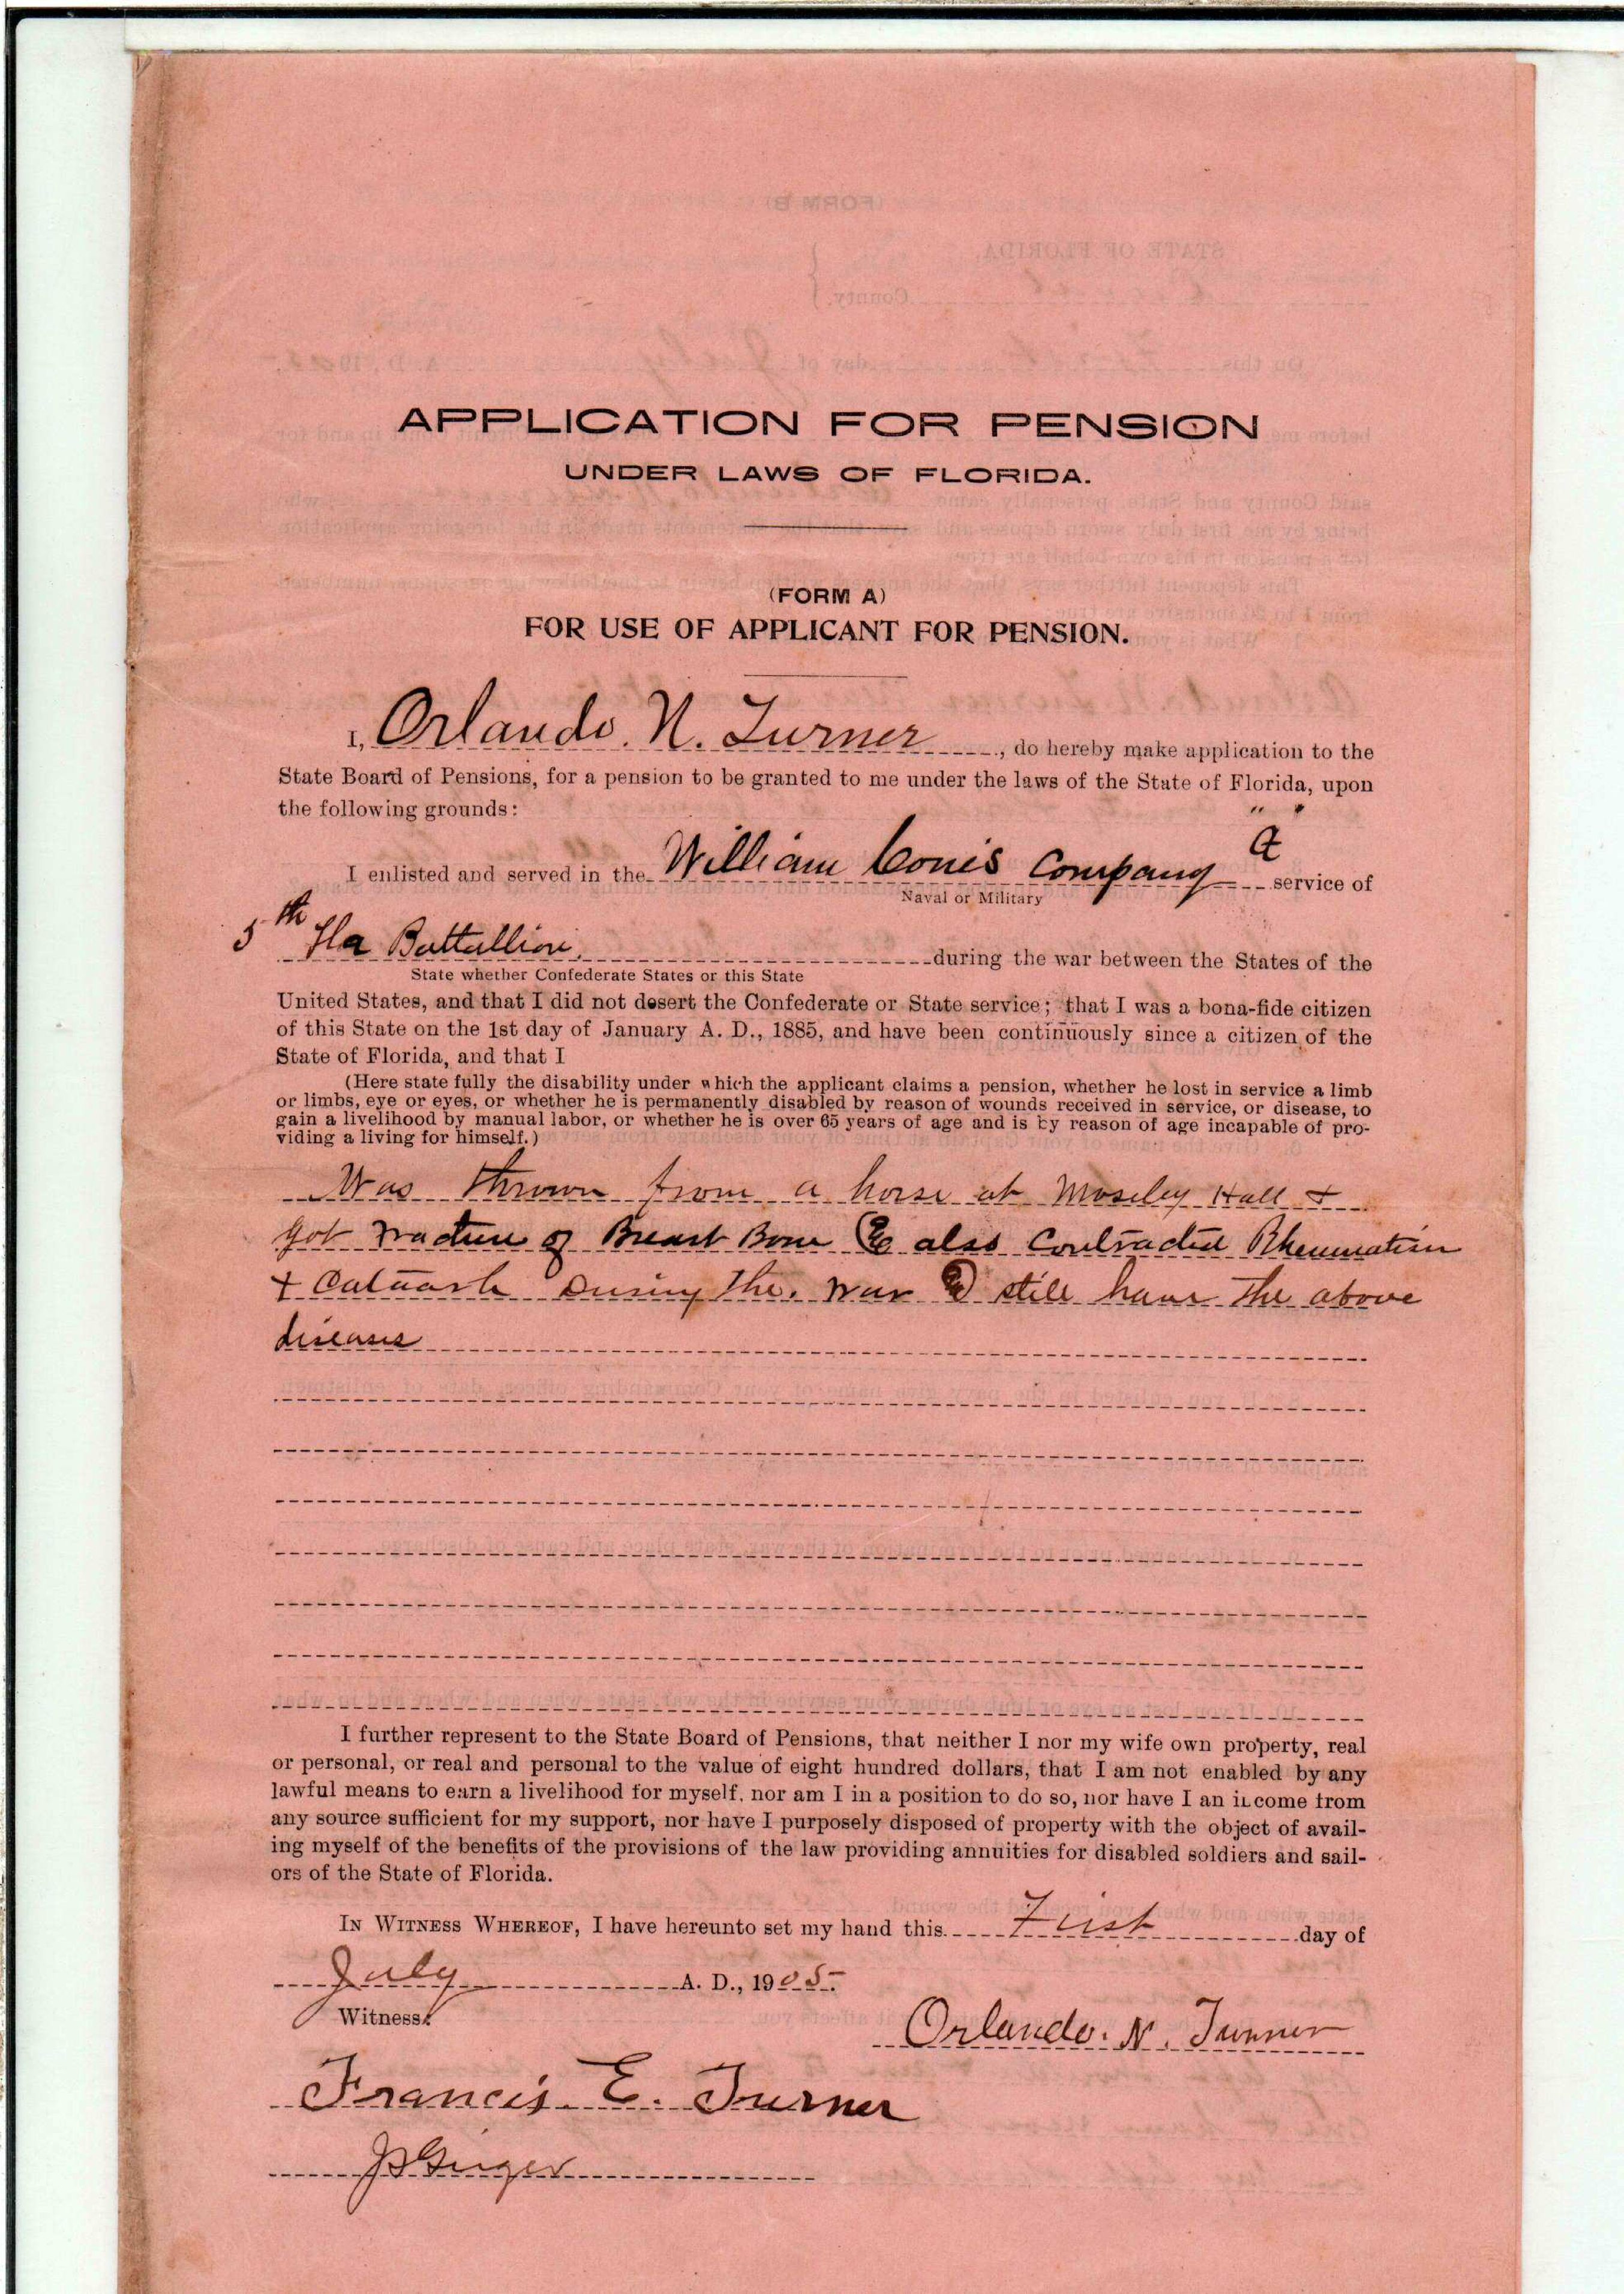 APPLICATION FOR PENSION
UNDER LAWS OF FLORIDA.
(FORM A)
FOR USE OF APPLICANT FOR PENSION.
I, Orlando. N. Turner, do hereby make application to the
State Board of Pensions, for a pension to be granted to me under the laws of the State of Florida, upon
the following grounds:
I enlisted and served in the William Cones Company "A" service of
Naval or Military
5th Fla Battallion. during the war between the States of the
State whether Confederate States or this State
United States, and that I did not desert the Confederate or State service; that I was a bona-fide citizen
of this State on the 1st day of January A. D., 1885, and have been continuously since a citizen of the
State of Florida, and that I
(Here state fully the disability under which the applicant claims a pension, whether he lost in service a limb
or limbs, eye or eyes, or whether he is permanently disabled by reason of wounds received in service, or disease, to
gain a livelihood by manual labor, or whether he is over 65 years of age and is by reason of age incapable of pro-
viding a living for himself.)
Was thrown from a horse at Moseley Hall +
got fracture of Breast Bone & also Contracted Rheumatism
+ Catarrh During the. War & still have the above
diseases
I further represent to the State Board of Pensions, that neither I nor my wife own property, real
or personal, or real and personal to the value of eight hundred dollars, that I am not enabled by any
lawful means to earn a livelihood for myself, nor am I in a position to do so, nor have I an income from
any source sufficient for my support, nor have I purposely disposed of property with the object of avail-
ing myself of the benefits of the provisions of the law providing annuities for disabled soldiers and sail-
ors of the State of Florida.
IN WITNESS WHEREOF, I have hereunto set my hand this First day of
July A. D., 1905.
Witness:
Orlando. N. Turner
Francis. E. Turner